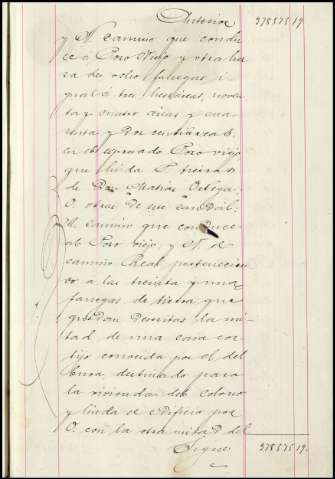 Anterior 278575 19
y N. camino que condu-
ce á Pozo Viejo y otra haza
de ocho fanegas i-
gual á tres hectáreas, noven-
ta y cuatro áreas y cua-
renta y dos centiáreas,
en el espresado Pozo viejo
que linda P. tierras
de Don Matías Ortega;
O. otras de su caudal;
M. camino que conduce
al Pozo viejo; y N. el
camino Real, pertenecien-
do á las treinta y una
fanegas de tierra que
quedan descritas la mi-
tad de una casa cor-
tijo conocida por el del
Cura destinado para
la vivienda del colono
y linda el edificio por
O. con la otra mitad del
Sigue 278575 19.